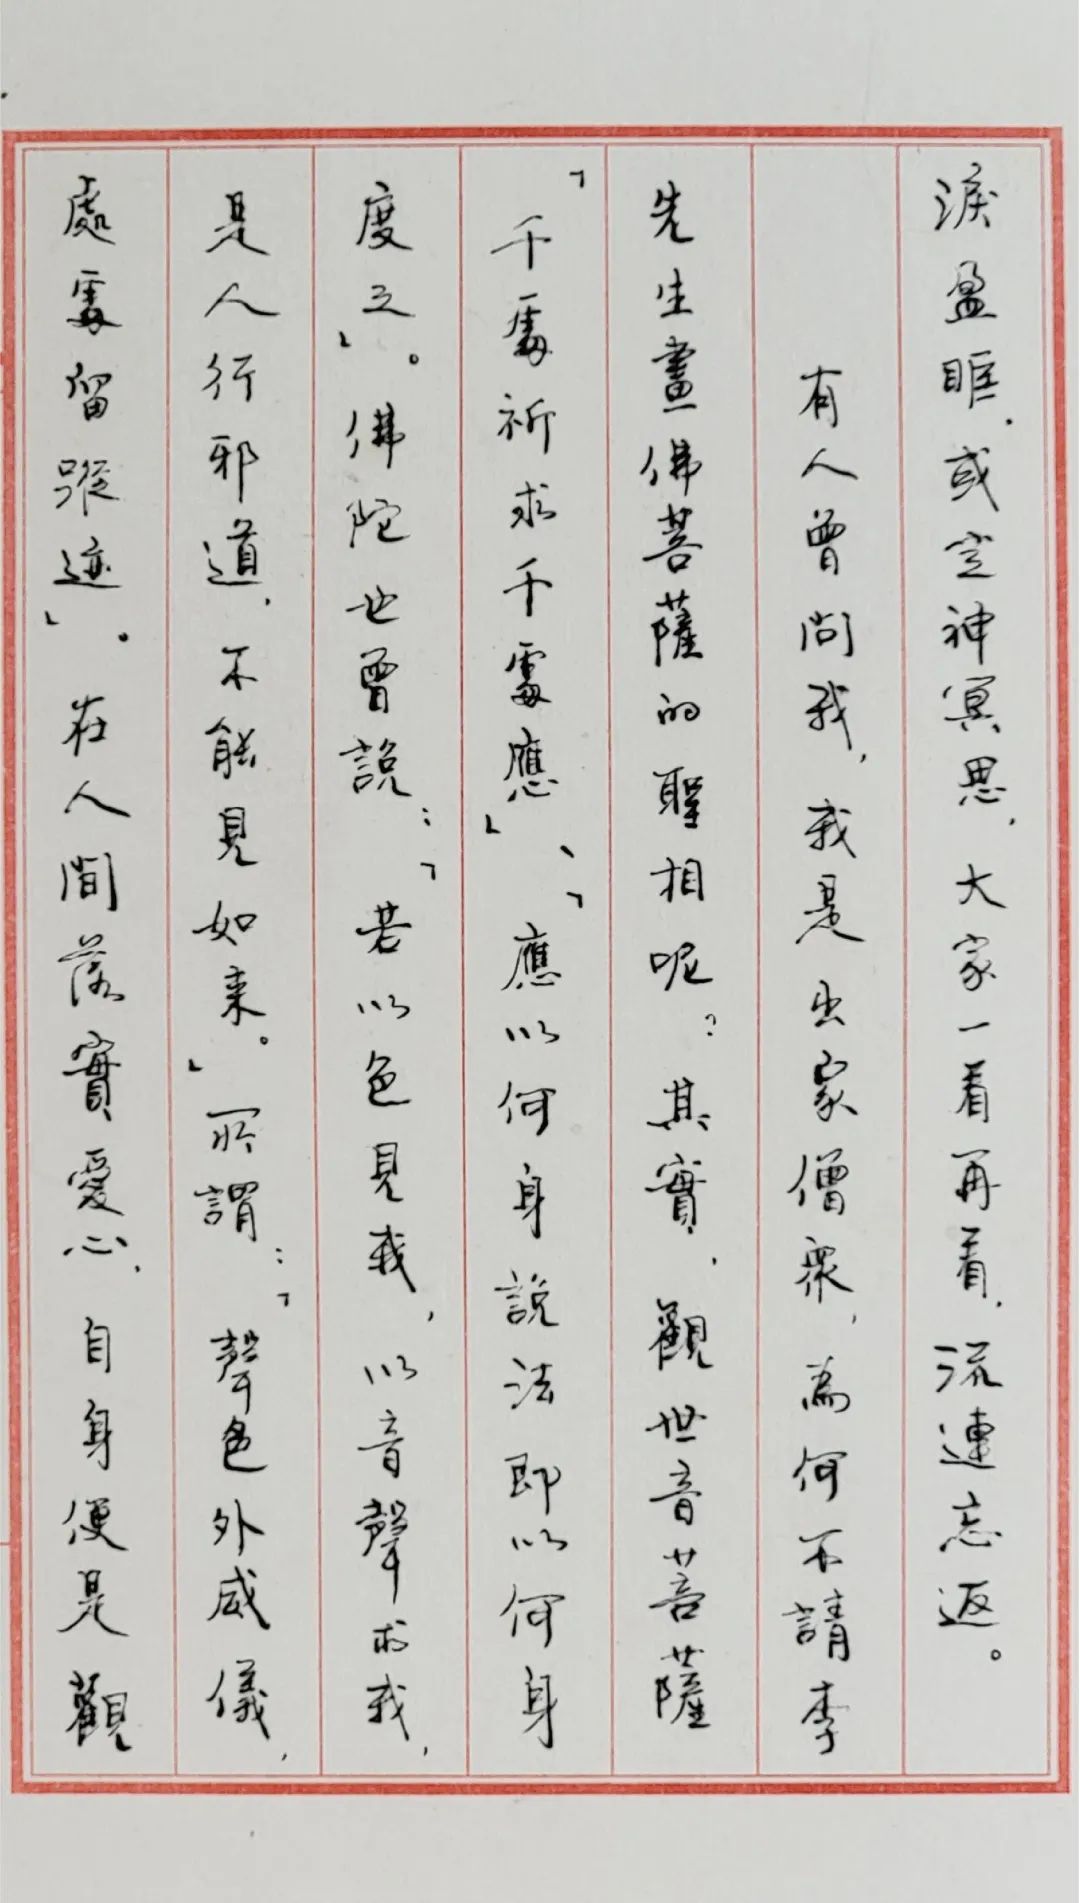 淚盈眶，或空神冥思，大家一看再看，流連忘返。
有人曾問我，我是出家僧眾，為何不請李
先生畫佛菩薩的聖相呢？其實，觀世音菩薩
「千處祈求千處應」、「應以何身說法即以何身
度之」。佛陀也曾說：「若以色見我，以音聲求我，
是人行邪道，不能見如來。」所謂：「聲色外威儀，
處處留蹤迹」。在人間落實愛心，自身便是觀